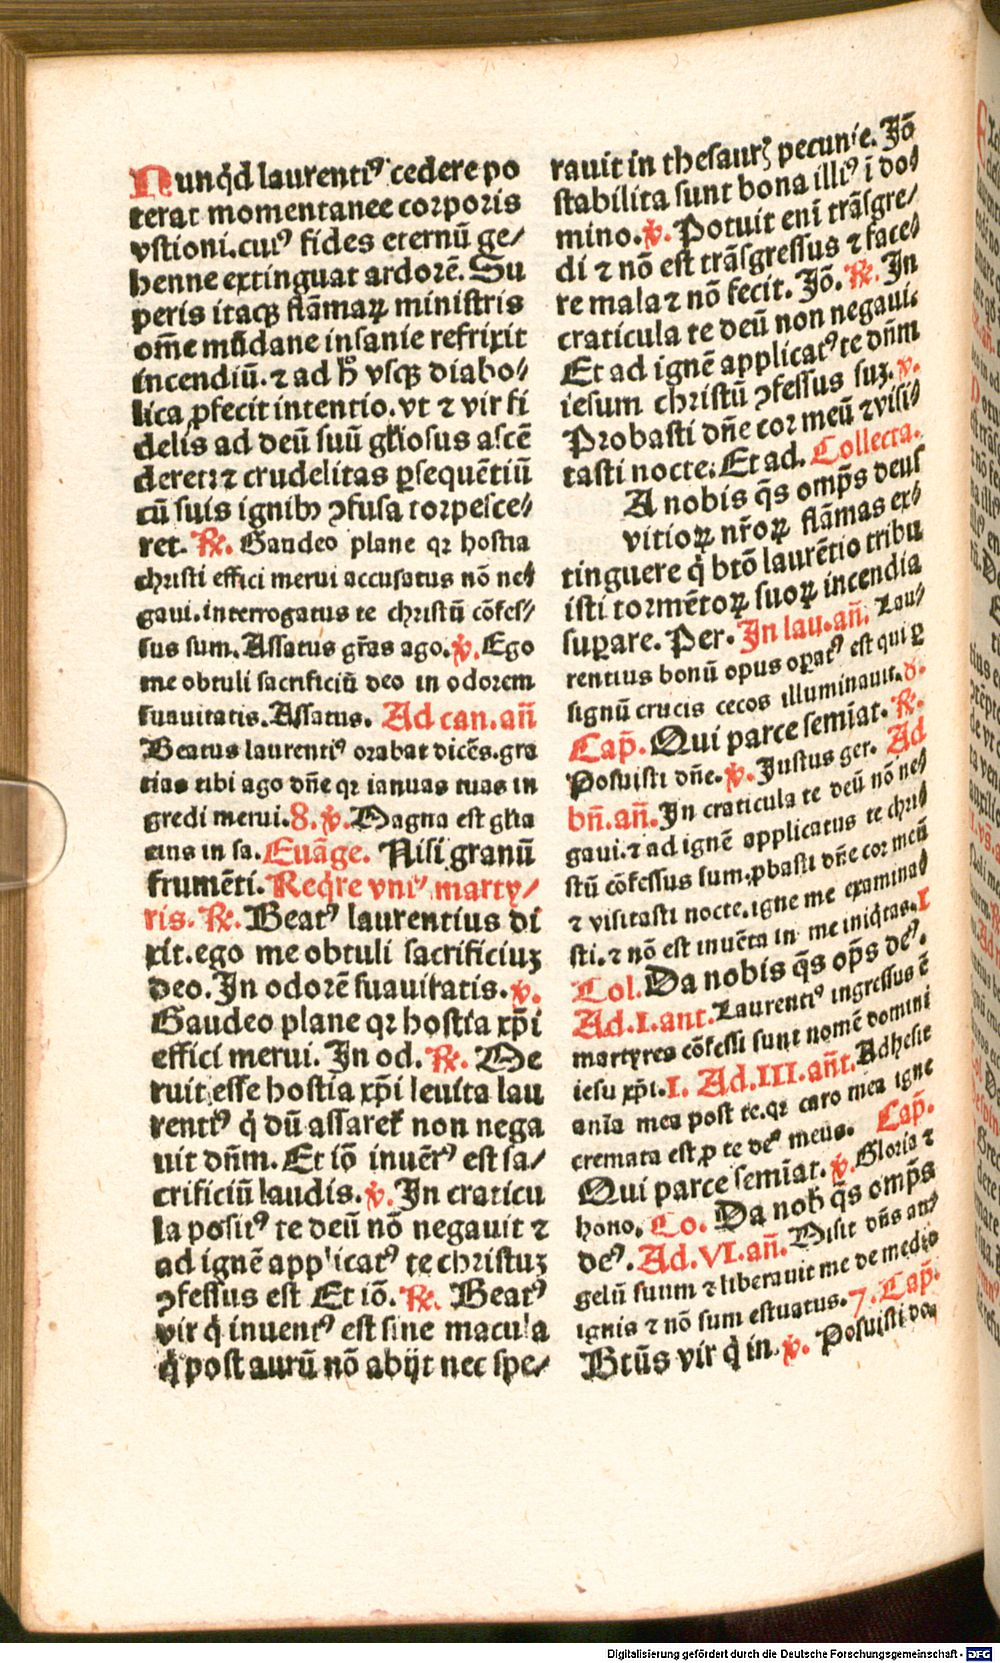 Nunq̇d laurentiꝰ cedere po
terat momentanee corporis
vstioni.cuiꝰ fides eternū ge/
henne extinguat ardorē. Su
peris itaqꝫ flāmaꝝ ministris
om̄e mūdane insanie refrixit
incendiū. ⁊ ad h̊ vsqꝫ diabo/
lica ꝓfecit intentio. vt ⁊ vir fi
delis ad deū suū gl̄iosus ascē
deret: ⁊ crudelitas ꝑsequētiū
cū suis ignibꝫ ꝯfusa torpesce/
ret. ℟. Gaudeo plane qꝛ hostia
christi effici merui accusatus nō ne/
gaui. interrogatus te christū cōfes/
sus sum. Assatus gr̄as ago. ℣. Ego
me obtuli sacrificiū deo in odorem
suauitatis. Assatus. Ad can. an̄
Beatus laurentiꝰ orabat dicēs. gra
tias tibi ago dn̄e qꝛ ianuas tuas in
gredi merui. 8. ℣. Magna est gl̄ia
eius in sa. Euāge. Nisi granū
frumēti. Reqͥre vniꝰ marty/
ris. ℟. Beatꝰ laurentius di
xit. ego me obtuli sacrificiuꝫ
deo. In odorē suauitatis. ℣.
Gaudeo plane qꝛ hostia xp̄i
effici merui. In od. ℟. Me
ruit esse hostia xp̄i leuita lau
rentiꝰ q̇ dū assaret̉ non nega
uit dn̄m. Et iō inuētꝰ est sa/
crificiū laudis. ℣. In craticu
la positꝰ te deū nō negauit ⁊
ad ignē applicatꝰ te christuꝫ
ꝯfessus est Et iō. ℟. Beatꝰ
vir q̇ inuentꝰ est sine macula
q̇ post aurū nō abijt nec spe/
rauit in thesaurꝭ pecunie. Iō
stabilita sunt bona illiꝰ ī do/
mino. ℣. Potuit enī trāsgre/
di ⁊ nō est trāsgressus ⁊ face/
re mala ⁊ nō fecit. Iō. ℟. In
craticula te deū non negaui.
Et ad ignē applicatꝰ te dn̄m
iesum christū ꝯfessus suꝫ. ℣.
Probasti dn̄e cor meū ⁊ visi/
tasti nocte. Et ad. Collecta.
A nobis q̄s omp̄s deus
vitioꝝ nr̄oꝝ flāmas ex/
tinguere q̇ btō laurētio tribu
isti tormētoꝝ suoꝝ incendia
suꝑare. Per. In lau. an̄. Lau/
rentius bonū opus oꝑatꝰ est qui ꝑ
signū crucis cecos illuminauit. 8.
Cap̄. Qui parce semīat. ℟.
Posuisti dn̄e. ℣. Justus ger. Ad
bn̄. an̄. In craticula te deū nō ne/
gaui. ⁊ ad ignē applicatus te chri/
stū cōfessus sum. ꝓbasti dn̄e cor meū
⁊ visitasti nocte. igne me examina/
sti. ⁊ nō est inuēta in me iniq̇tas. I
Col. Da nobis q̄s op̄s deꝰ.
Ad. I. ant. Laurentiꝰ ingressus ē
martyres cōfessi sunt nomē domini
iesu xp̄i. I. Ad. III. an̄t. Adhesit
an̄ia mea post te. qꝛ caro mea igne
cremata est ꝓ te deꝰ meus. Cap̄.
Qui parce semīat. ℣. Gloria ⁊
hono. Co. Da nob̄ q̄s omp̄s
deꝰ. Ad. VI. an̄. Misit dn̄s an/
gelū suum ⁊ liberauit me de medio
ignis ⁊ nō sum estuatus. 7. Cap̄.
Btūs vir q̇ in. ℣. Posuisti do
Digitalisierung gefördert durch die Deutsche Forschungsgemeinschaft - DFG